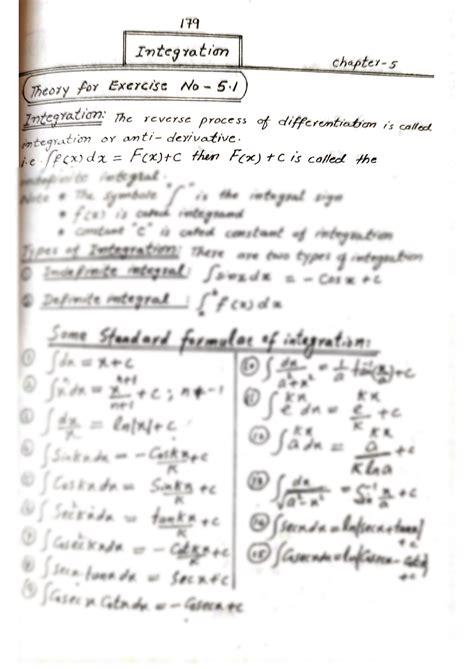 179
Integration
chapter-5
Theory for Exercise No - 5.1
Integration: The reverse process of differentiation is called
integration or anti-derivative.
i.e ∫f(x)dx = F(x)+c then F(x)+c is called the
indefinite integral.
Note * The symbole "∫" is the integral sign
* f(x) is called integrand
* constant "c" is called constant of integration
Types of Integration: There are two types of integration
① Indefinite integral: ∫sinxdx = -Cosx+c
② Definite integral : ∫ f(x)dx
Some Standard formulae of integration:
① ∫dx = x+c
② ∫xⁿdx = xⁿ⁺¹/n+1 + c ; n≠-1
③ ∫dx/x = ln|x|+c
④ ∫Sinkxdx = -Coskx/k+c
⑤ ∫Coskxdx = Sinkx/k+c
⑥ ∫Sec²kxdx = tankx/k+c
⑦ ∫Cosec²kxdx = -Cotkx/k+c
⑧ ∫secx tanxdx = Secx+c
⑨ ∫Cosecx Cotxdx = -Cosecx+c
⑩ ∫dx/a²+x² = 1/a tan⁻¹(x/a)+c
⑪ ∫eᵏˣdx = eᵏˣ/k+c
⑫ ∫aᵏˣdx = aᵏˣ/klna+c
⑬ ∫dx/√a²-x² = Sin⁻¹x/a+c
⑭ ∫secxdx = ln|secx+tanx|+c
⑮ ∫Cosecxdx = ln|Cosecx-Cotx|+c